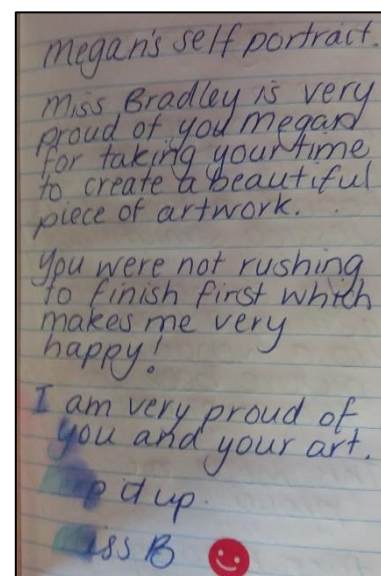 Megan's self portrait.
Miss Bradley is very
proud of you Megan
for taking your time
to create a beautiful
piece of artwork.
You were not rushing
to finish first which
makes me very
happy!
I am very proud of
you and your art.
up.
B